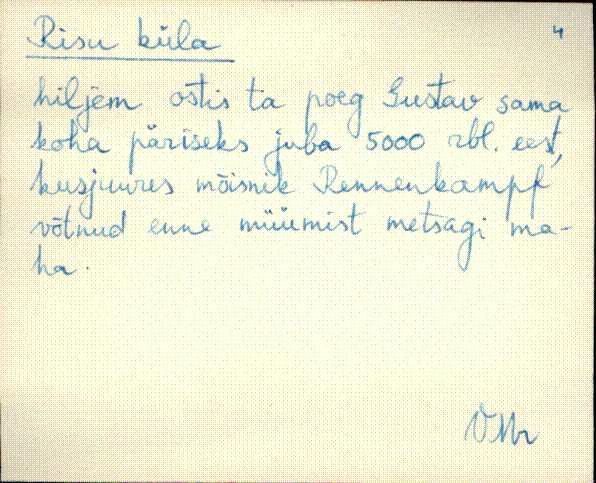 Risu küla 4
hiljem ostis ta poeg Gustav sama
koha päriseks juba 5000 rbl. eest,
kusjuures mõisnik Rennenkampf
võtnud enne müümist metsagi ma-
ha.